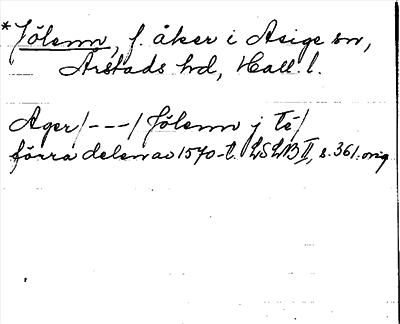 *Jölenn, f. åker i Asige sn,
Årstads hd, Hall. l.
Ager/---/Jölenn j Te/
förra delen av 1570-t. LSLB II, s. 361. orig